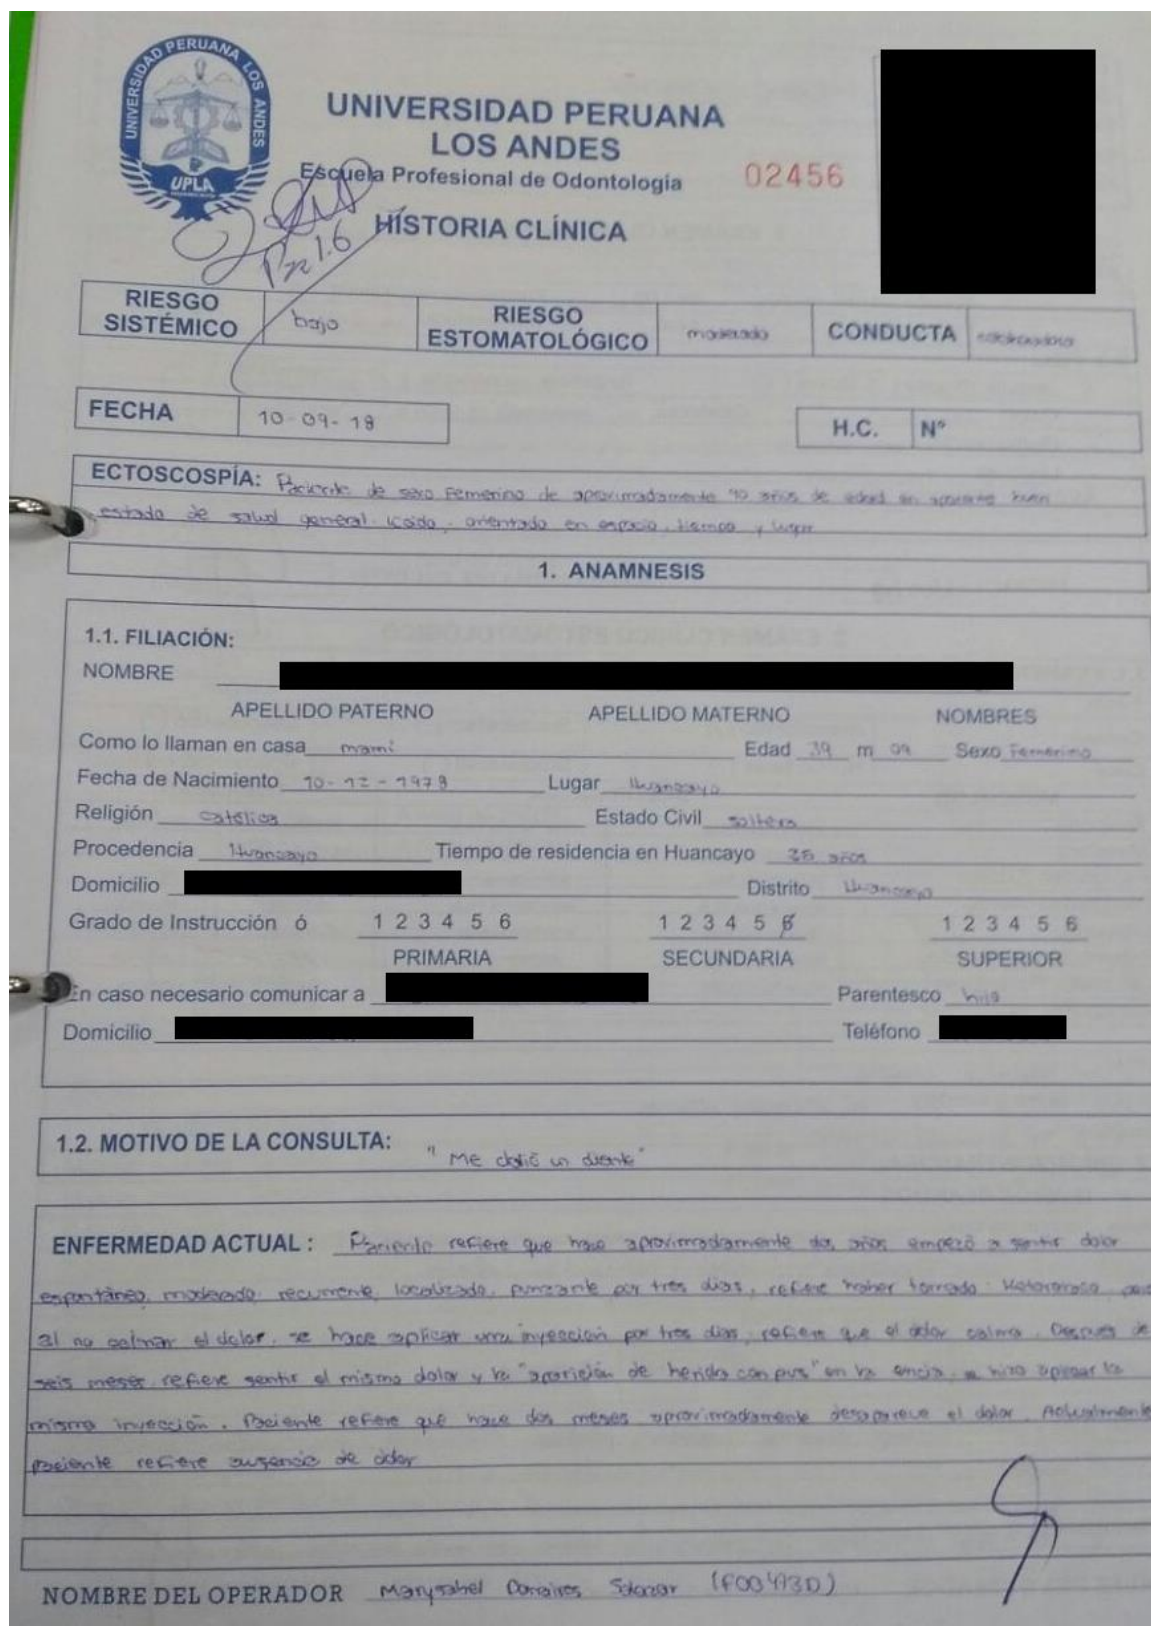 UNIVERSIDAD PERUANA LOS ANDES
UPLA
UNIVERSIDAD PERUANA
LOS ANDES
Escuela Profesional de Odontología 02456
HISTORIA CLÍNICA
RIESGO SISTÉMICO bajo RIESGO ESTOMATOLÓGICO moderado CONDUCTA
FECHA 10-09-18 H.C. Nº
ECTOSCOSPÍA: Paciente de sexo Femenino de aproximadamente 40 años de edad en aparente buen
estado de salud general. lúcido, orientado en espacio, tiempo y lugar
1. ANAMNESIS
1.1. FILIACIÓN:
NOMBRE
APELLIDO PATERNO APELLIDO MATERNO NOMBRES
Como lo llaman en casa mami Edad 39 m 09 Sexo Femenino
Fecha de Nacimiento 10-12-1978 Lugar Huancayo
Religión católica Estado Civil soltera
Procedencia Huancayo Tiempo de residencia en Huancayo años
Domicilio Distrito Huancayo
Grado de Instrucción ó 1 2 3 4 5 6 1 2 3 4 5 6 1 2 3 4 5 6
PRIMARIA SECUNDARIA SUPERIOR
En caso necesario comunicar a Parentesco
Domicilio Teléfono
1.2. MOTIVO DE LA CONSULTA: "Me dolió un diente"
ENFERMEDAD ACTUAL : Paciente refiere que hace aproximadamente dos años empezó a sentir dolor
espontáneo, moderado, recurrente, localizado, punzante por tres días, refiere haber tomado
al no calmar el dolor, se hace aplicar una inyección por tres días, refiere que el dolor calma. Después de
seis meses refiere sentir el mismo dolor y la "aparición de herida con pus" en la encía, hizo aplicar la
misma inyección. Paciente refiere que hace dos meses aproximadamente desaparece el dolor. Actualmente
paciente refiere ausencia de dolor
NOMBRE DEL OPERADOR Salazar